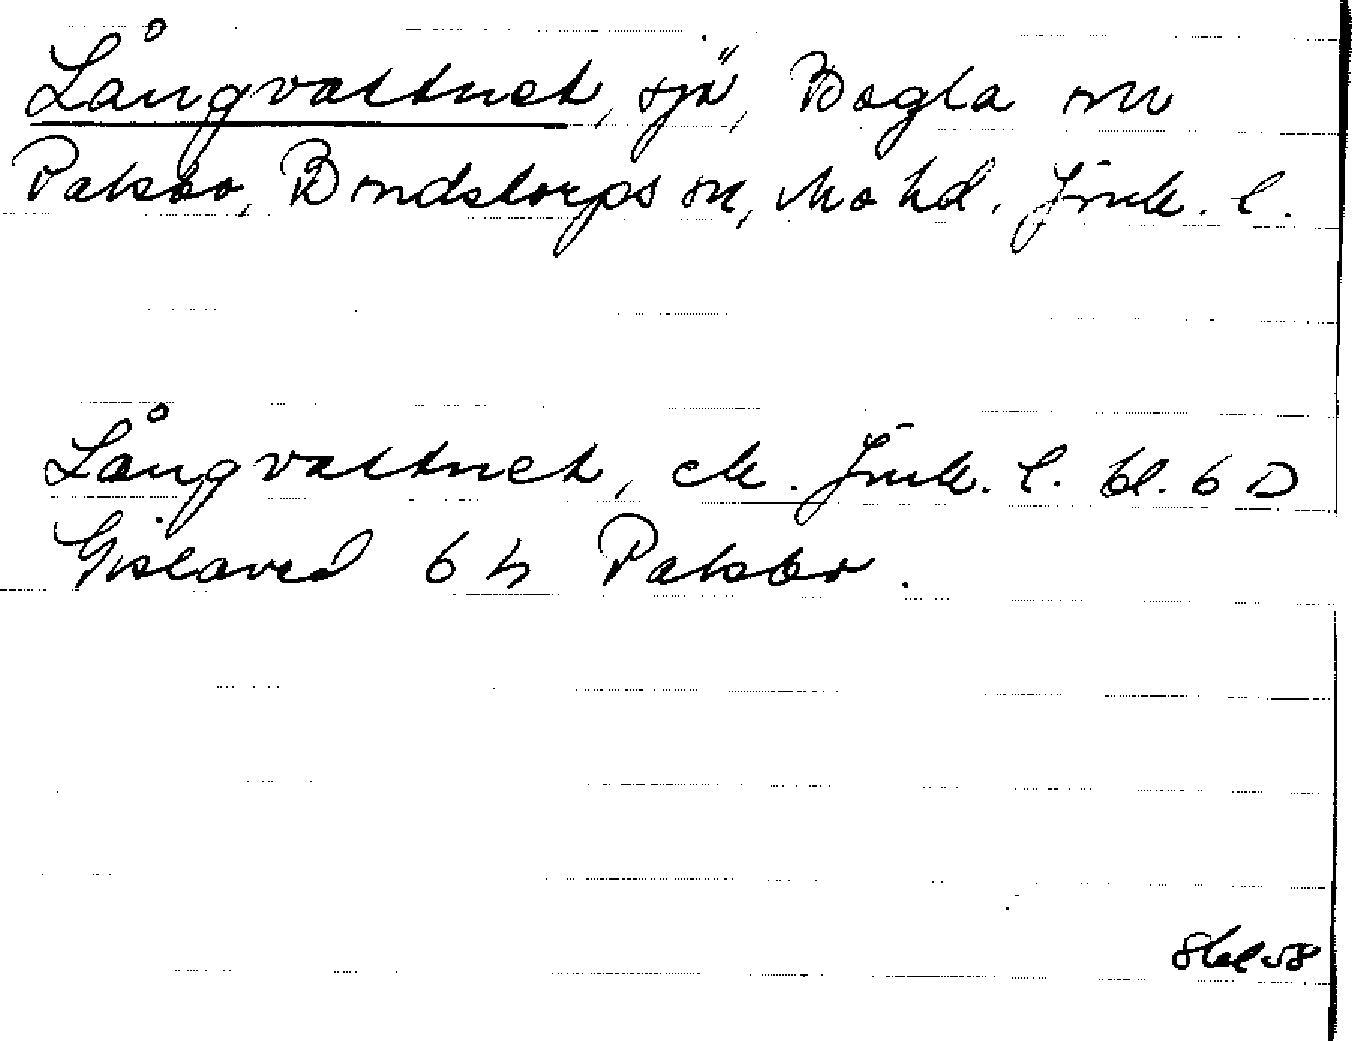 Långvattnet, sjö, Bogla sn
Paksbo, Bondstorps sn, Mo hd. Jönk. l.
Långvattnet, ek. Jönk. l. bl. 6 D
Gislaved 6 h Paksbo.